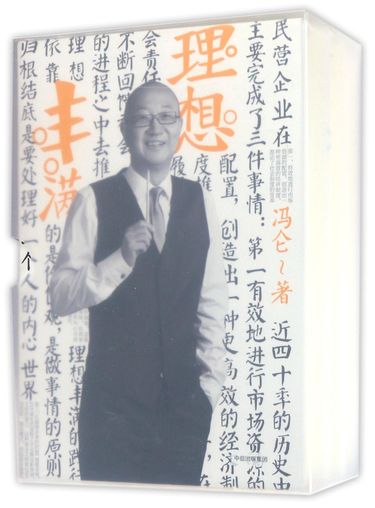 理想
丰满
冯仑~著
民营企业在
近四十年的历史中
主要完成了三件事情：第一有效地进行市场资源的
配置，创造出一种更高效的经济制
度推
履
会责任
不断回
的进程之中去推
理想
理想丰满的践行
依靠
的是价值观，是做事情的原则
归根结底是要处理好一个人的内心世界
中信出版集团